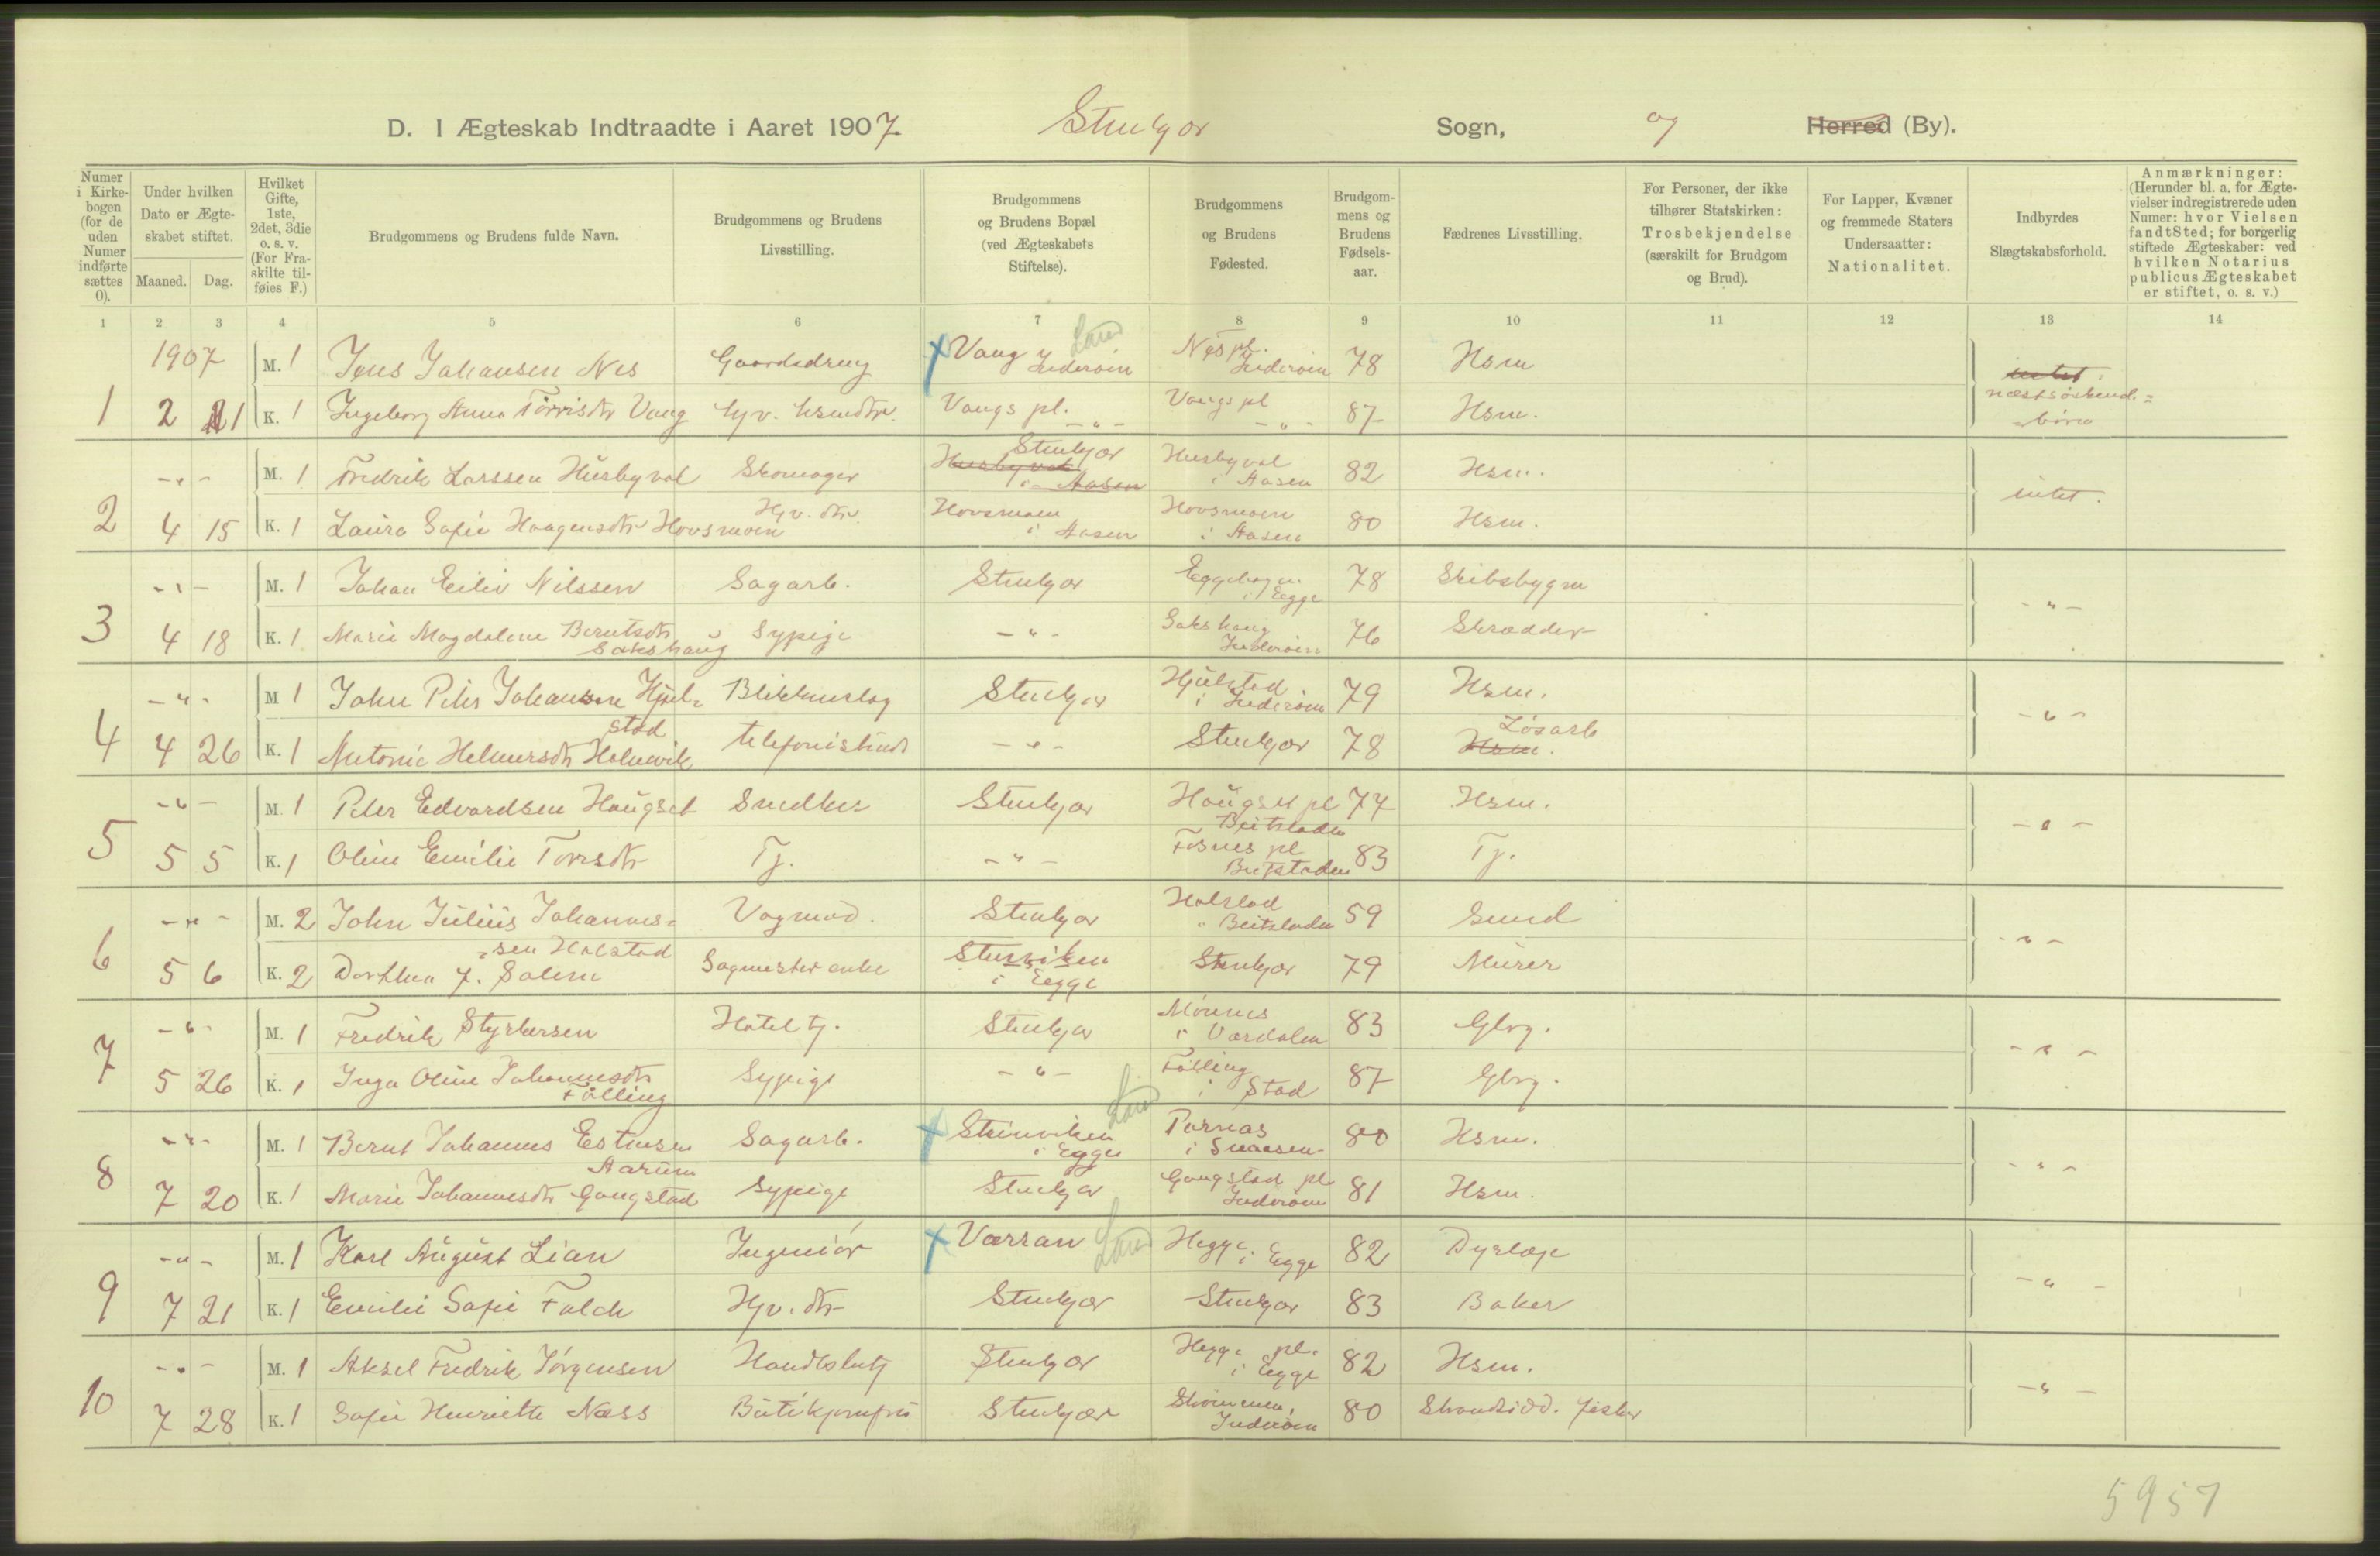 D. I Ægteskab Indtraadte i Aaret 1907 Stenkjær Sogn, og Herred (By).
Numer i Kirkebogen (for de uden Numer indførte sættes 0).
Under hvilken Dato er Ægteskabet stiftet.
Maaned. Dag.
Hvilket Gifte, 1ste, 2det, 3die o. s. v. (For Fraskilte tilføies F.)
Brudgommens og Brudens fulde Navn.
Brudgommens og Brudens Livsstilling.
Brudgommens og Brudens Bopæl (ved Ægteskabets Stiftelse).
Brudgommens og Brudens Fødested.
Brudgommens og Brudens Fødselsaar.
Fædrenes Livsstilling.
For Personer, der ikke tilhører Statskirken: Trosbekjendelse (særskilt for Brudgom og Brud).
For Lapper, Kvæner og fremmede Staters Undersaatter: Nationalitet.
Indbyrdes Slægtskabsforhold.
Anmærkninger: (Herunder bl. a. for Ægtevielser indregistrerede uden Numer: hvor Vielsen fandt Sted; for borgerlig stiftede Ægteskaber: ved hvilken Notarius publicus Ægteskabet er stiftet, o. s. v.)
1 2 3 4 5 6 7 8 9 10 11 12 13 14
1907 M. 1 Jens Johansen Nes Gaardsdreng Vang Inderøen Land Nes pl. Inderøen 78 Hsm intet
1 2 21 K. 1 Ingeborg Anna Vang Vangs pl. - " - Vangs pl - " - 87 Hsm. næstsøskendebørn
- " - M. 1 Fredrik Larssen Husbyval Skomager Stenkjær Husbyval i Aasen Husbyval i Aasen 82 Hsm. intet.
2 4 15 K. 1 Laura Sofie Haagensdtr Hovsmoen Hjv. dtr Hovsmoen i Aasen Hovsmoen i Aasen 80 Hsm.
- " - M. 1 Johan Eiliv Nilssen Sagarb. Stenkjær i Egge 78 Skibsbygm - " -
3 4 18 K. 1 Marie Magdalene Berntsdtr Sakshaug Sypige - " - Sakshaug Inderøen 76 Skrædder
- " - M 1 John Peter Johansen Hjulstad Blikkenslag Stenkjær Hjulstad i Inderøen 79 Hsm. - " -
4 4 26 K. 1 Antonie Helmersdtr Holmvik telefonistinde - " - Stenkjær 78 Hsm. Løsarb
- " - M. 1 Peter Edvardsen Haugset Snedker Stenkjær Haugset pl Beitstaden 77 Hsm. - " -
5 5 5 K. 1 Oline Emilie Torrisdtr Tj. - " - Fosnes pl Beitstaden 83 Tj.
- " - M. 2 John Julius Johannessen Halstad Vognmd. Stenkjær Halstad " Beitstaden 59 Smed - " -
6 5 6 K. 2 Dorthea J. Salem Sagmester enke Stenviken i Egge Stenkjær 79 Murer
- " - M. 1 Fredrik Styrkersen Hotel tj. Stenkjær i Værdalen 83 Gbrg. - " -
7 5 26 K. 1 Inga Oline Johannesdtr Følling Sypige - " - Følling i Stod 87 Gbrg.
- " - M. 1 Bernt Johannes Estensen Aarum Sagarb. Steinviken i Egge Land i Snaasen 80 Hsm. - " -
8 7 20 K. 1 Marie Johannesdtr Gangstad Sypige Stenkjær Gangstad pl Inderøen 81 Hsm.
- " - M. 1 Karl August Lian Ingeniør Værran Land Hegge i Egge 82 Dyrlæge - " -
9 7 21 K. 1 Emilie Sofie Falch Hjv. dtr Stenkjær Stenkjær 83 Baker
- " - M. 1 Aksel Fredrik Jørgensen Handelsbetj Stenkjær Hegge pl. i Egge 82 Hsm. - " -
10 7 28 K. 1 Sofie Henriette Næss Butikjomfru Stenkjær Strømmen, Inderøen 80 Strandsidd. fisker
5957